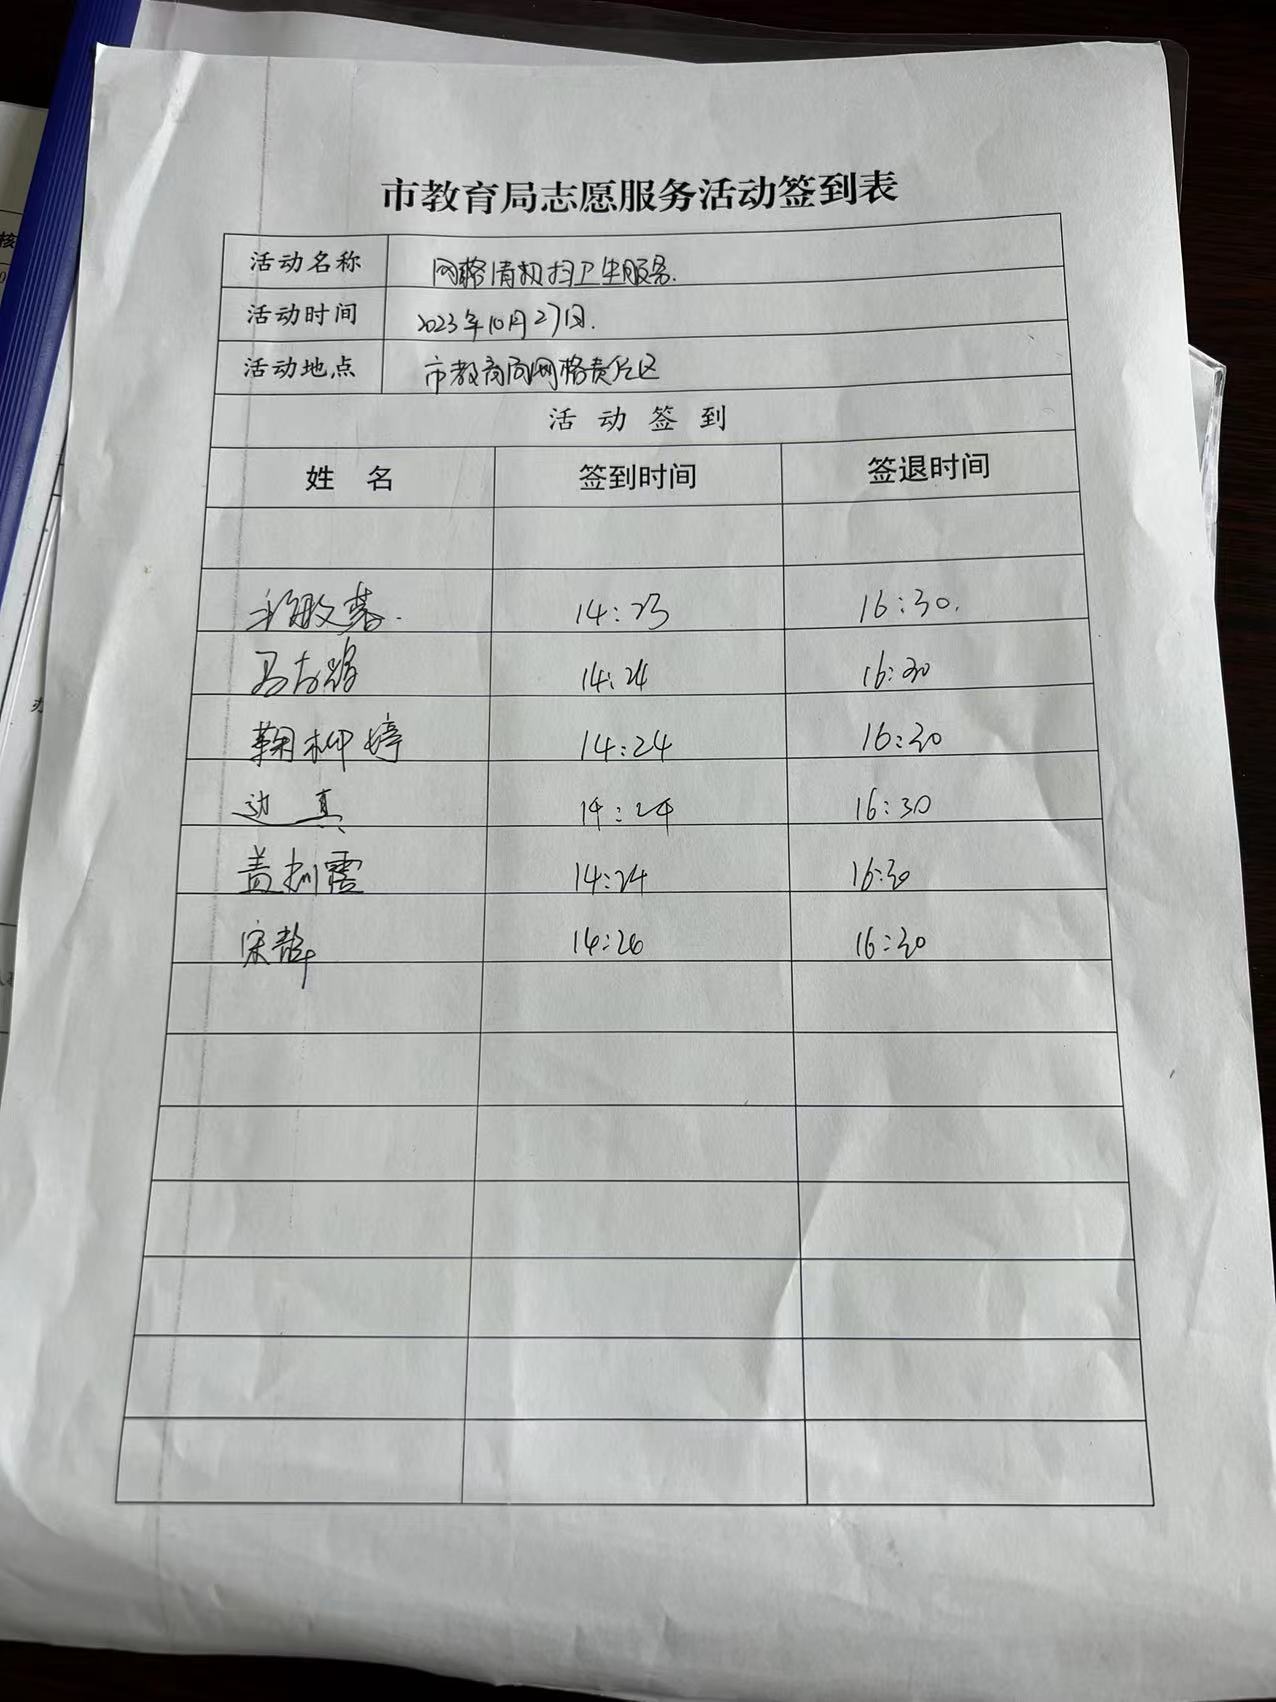 市教育局志愿服务活动签到表
活动名称 网格清扫卫生服务.
活动时间 2023年10月27日.
活动地点 市教育局网格责任区
活动签到
姓 名 签到时间 签退时间
14:23 16:30.
14:24 16:30
鞠柳婷 14:24 16:30
边真 14:24 16:30
盖 霞 14:24 16:30
宋 14:26 16:30